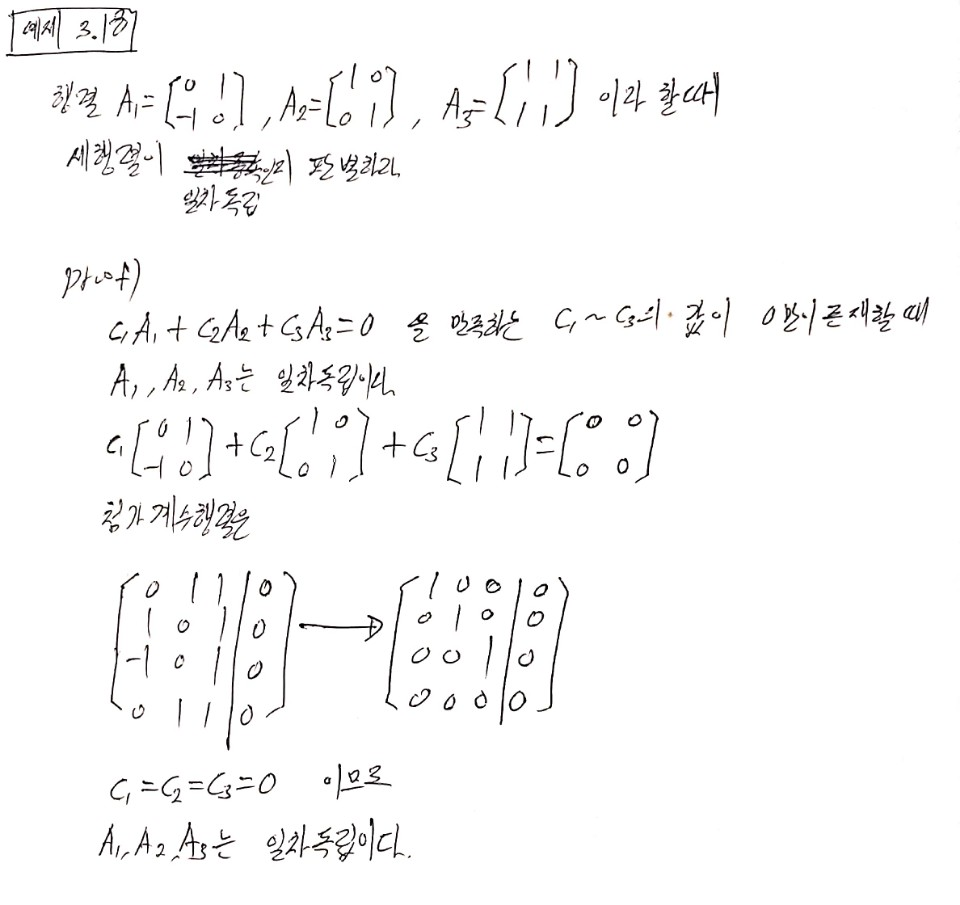 예제 3.18
행렬 A₁=[0 1; -1 0], A₂=[1 0; 0 1], A₃=[1 1; 1 1] 이라 할때
세행렬이 인지 판별하라.
일차독립
proof)
C₁A₁ + C₂A₂ + C₃A₃=0 을 만족하는 C₁ ~ C₃의 값이 0만이 존재할 때
A₁, A₂, A₃는 일차독립이다.
C₁[0 1; -1 0] + C₂[1 0; 0 1] + C₃[1 1; 1 1] = [0 0; 0 0]
첨가계수행렬은
[0 1 1 | 0] → [1 0 0 | 0]
[1 0 1 | 0] [0 1 0 | 0]
[-1 0 1 | 0] [0 0 1 | 0]
[0 1 1 | 0] [0 0 0 | 0]
C₁=C₂=C₃=0 이므로
A₁, A₂, A₃는 일차독립이다.